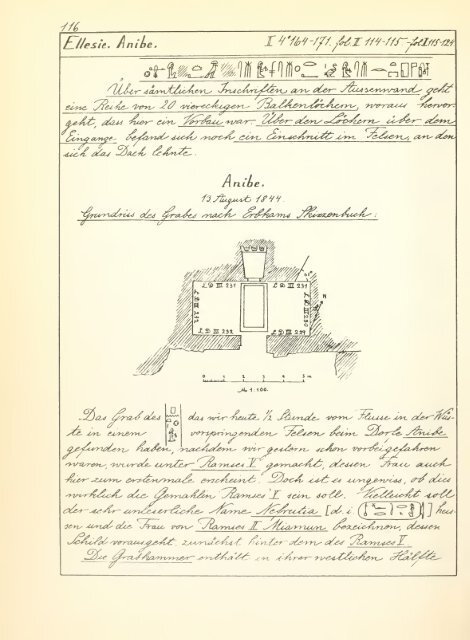 116
Ellesie. Anibe. II 4°164-171. fol II 114-115 - fol II 115-124
Über sämtlichen Inschriften an der Aussenwand geht
eine Reihe von 20 viereckigen Balkenlöchern, woraus hervor-
geht, dass hier ein Vorbau war. Über den Löchern über dem
Eingange befand sich noch ein Einschnitt im Felsen, an den
sich das Dach lehnte.
Anibe.
13 August 1844.
Grundriss des Grabes nach Erbkams Skizzenbuch:
LD III 231
LD III
N
LD III 232
LD III
0 1 2 3 4 5 m
M 1:100.
Das Grab des das wir heute ½ Stunde vom Flusse in der Wüs-
te in einem vorspringenden Felsen beim Dorfe Anibe
gefunden haben, nachdem wir gestern schon vorbeigefahren
waren, wurde unter Ramses V gemacht, dessen Frau auch
hier zum erstenmale erscheint. Doch ist es ungewiss, ob dies
wirklich die Gemahlin Ramses V sein soll. Vielleicht soll
der sehr unleserliche Name Nebrutia [d. i. ] heis-
sen und die Frau von Ramses II Miamun bezeichnen, dessen
Schild vorausgeht zunächst hinter dem des Ramses V
Die Grabkammer enthält in ihrer westlichen Hälfte